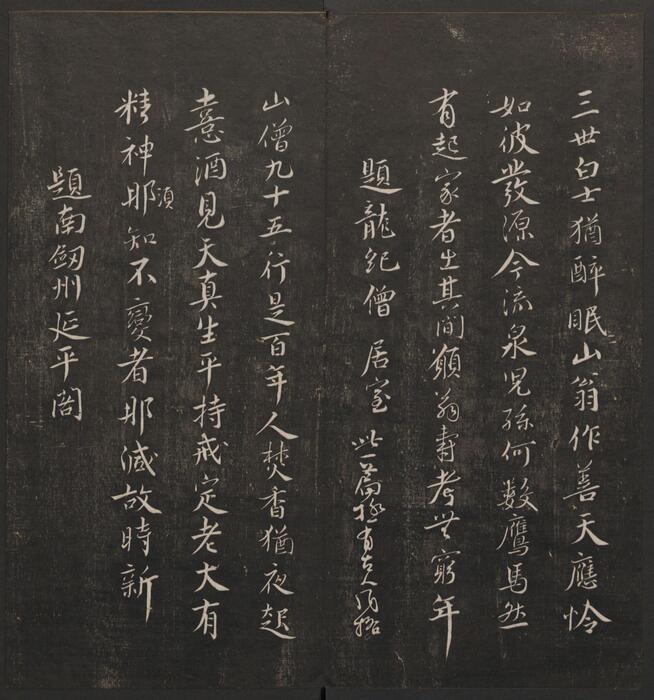 三世白士猶醉眠山翁作善天應怜
如彼發源今流泉児孫何數鷹馬然
有起家者出其間願翁壽考無窮年
題龍紀僧居室 此一篇極有古人風格
山僧九十五行是百年人焚香猶夜起
憙酒見天真生平持戒定老大有
精神耶須知不變者耶減故時新
題南劔州延平閣